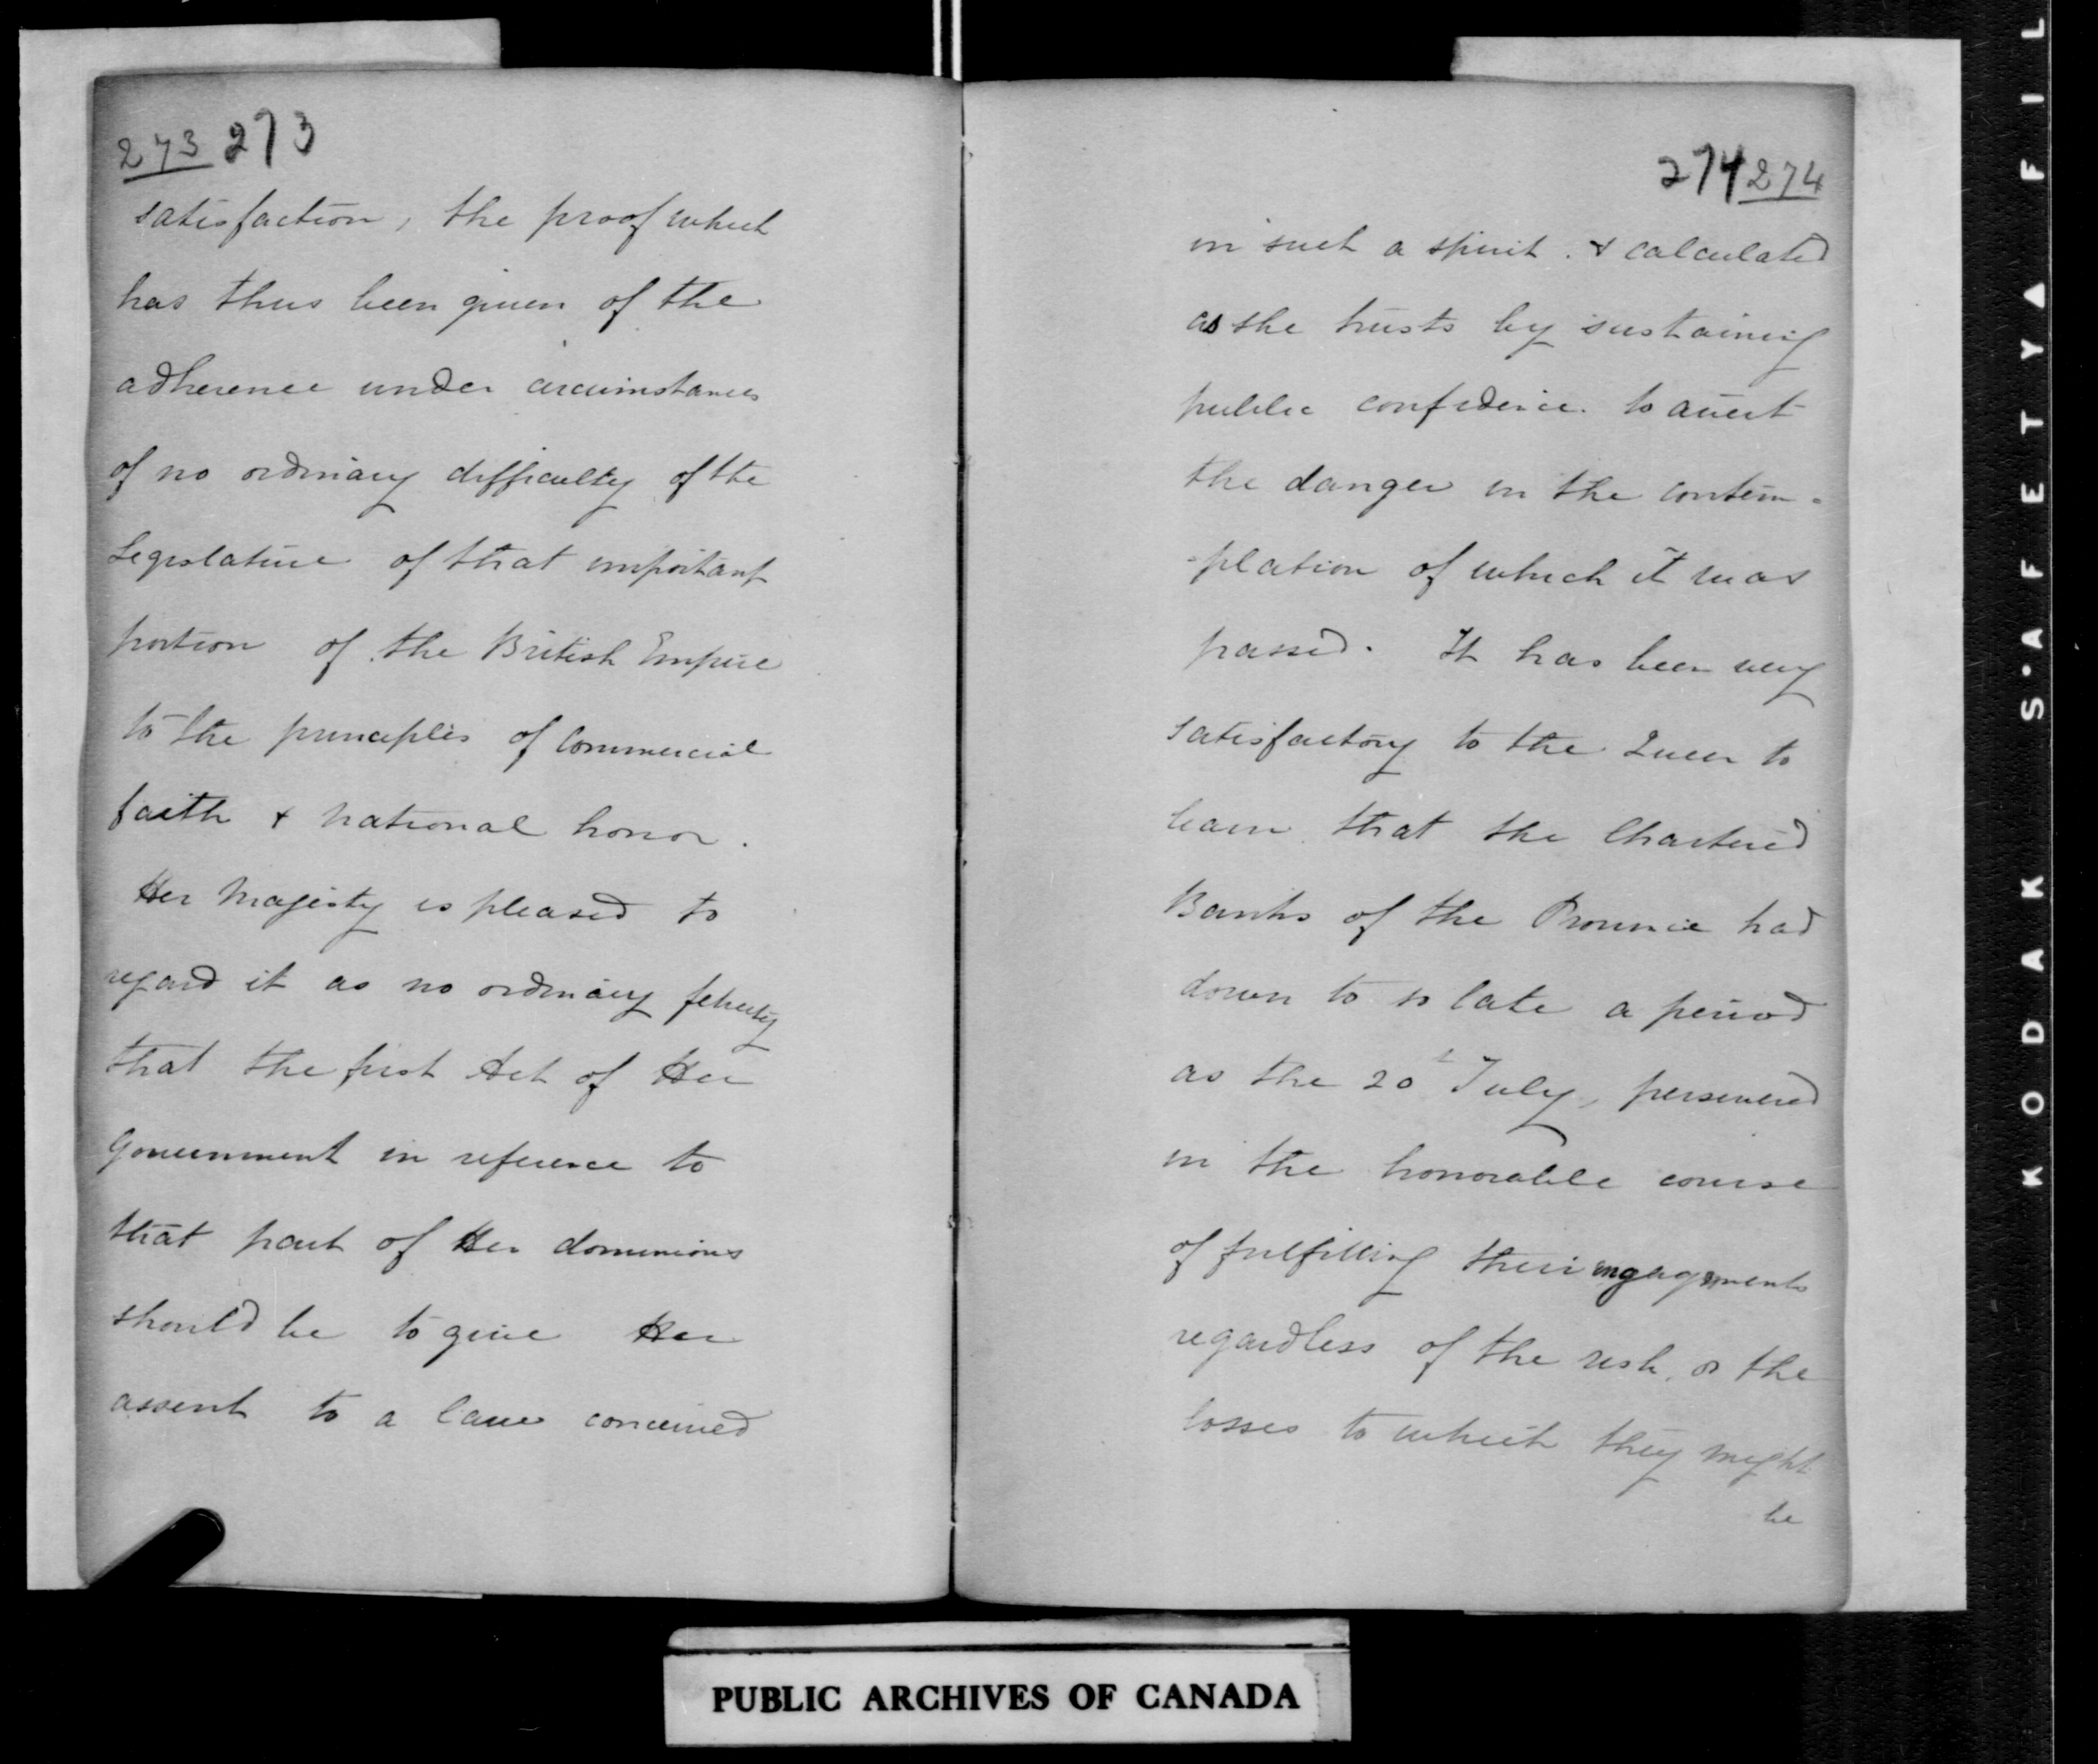 273 273
satisfaction, the proof which
has thus been given of the
adherence under circumstances
of no ordinary difficulty of the
Legislature of that important
portion of the British Empire
to the principles of Commercial
faith & national honor.
Her Majesty is pleased to
regard it as no ordinary felicity
that the first Act of Her
Government in reference to
that part of Her dominions
should be to give Her
assent to a law conceived
274 274
in such a spirit. & calculated
as she trusts by sustaining
public confidence. to avert
the danger in the contem-
-plation of which it was
passed. It has been very
satisfactory to the Queen to
learn that the Chartered
Banks of the Province had
down to so late a period
as the 20th July, persevered
in the honorable course
of fulfilling their engagements
regardless of the risk, or the
losses to which they might
be
PUBLIC ARCHIVES OF CANADA
KODAK S'AFETY A FIL